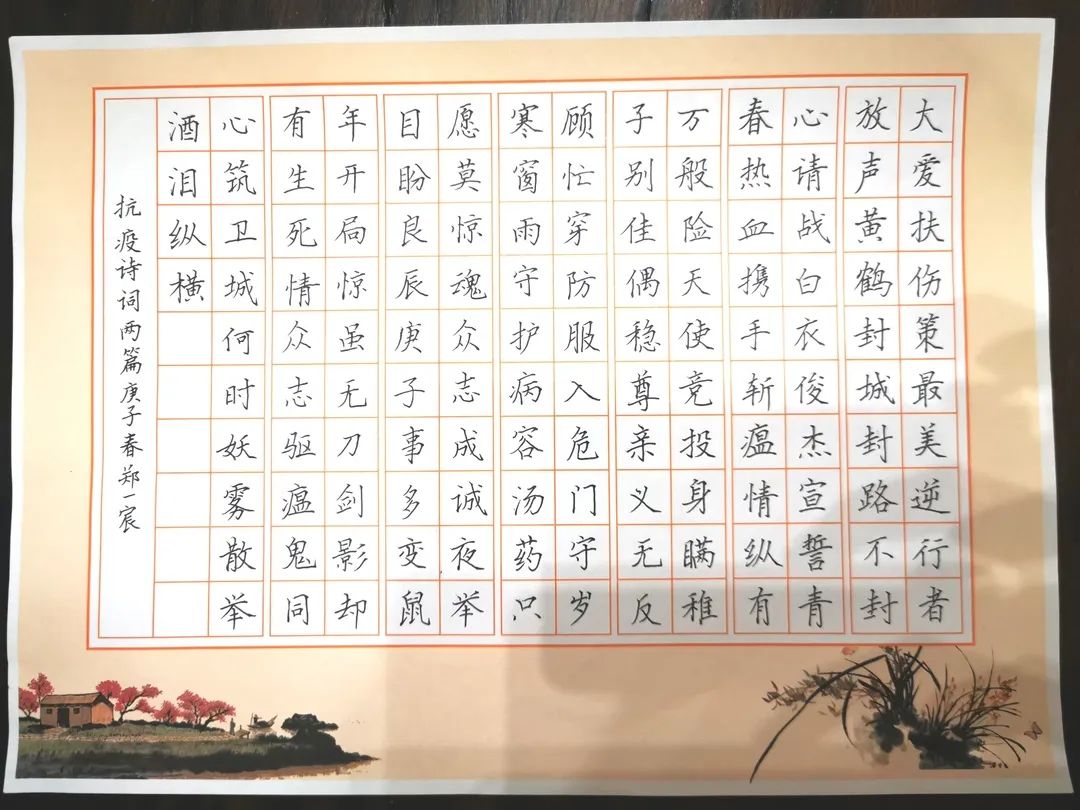 大爱扶伤策最美逆行者
放声黄鹤封城封路不封
心请战白衣俊杰宣誓青
春热血携手斩瘟情纵有
万般险天使竞投身瞒稚
子别佳偶稳尊亲义无反
顾忙穿防服入危门守岁
寒窗雨守护病容汤药只
愿莫惊魂众志成诚夜举
目盼良辰庚子事多变鼠
年开局惊虽无刀剑影却
有生死情众志驱瘟鬼同
心筑卫城何时妖雾散举
酒泪纵横
抗疫诗词两篇庚子春郑一宸